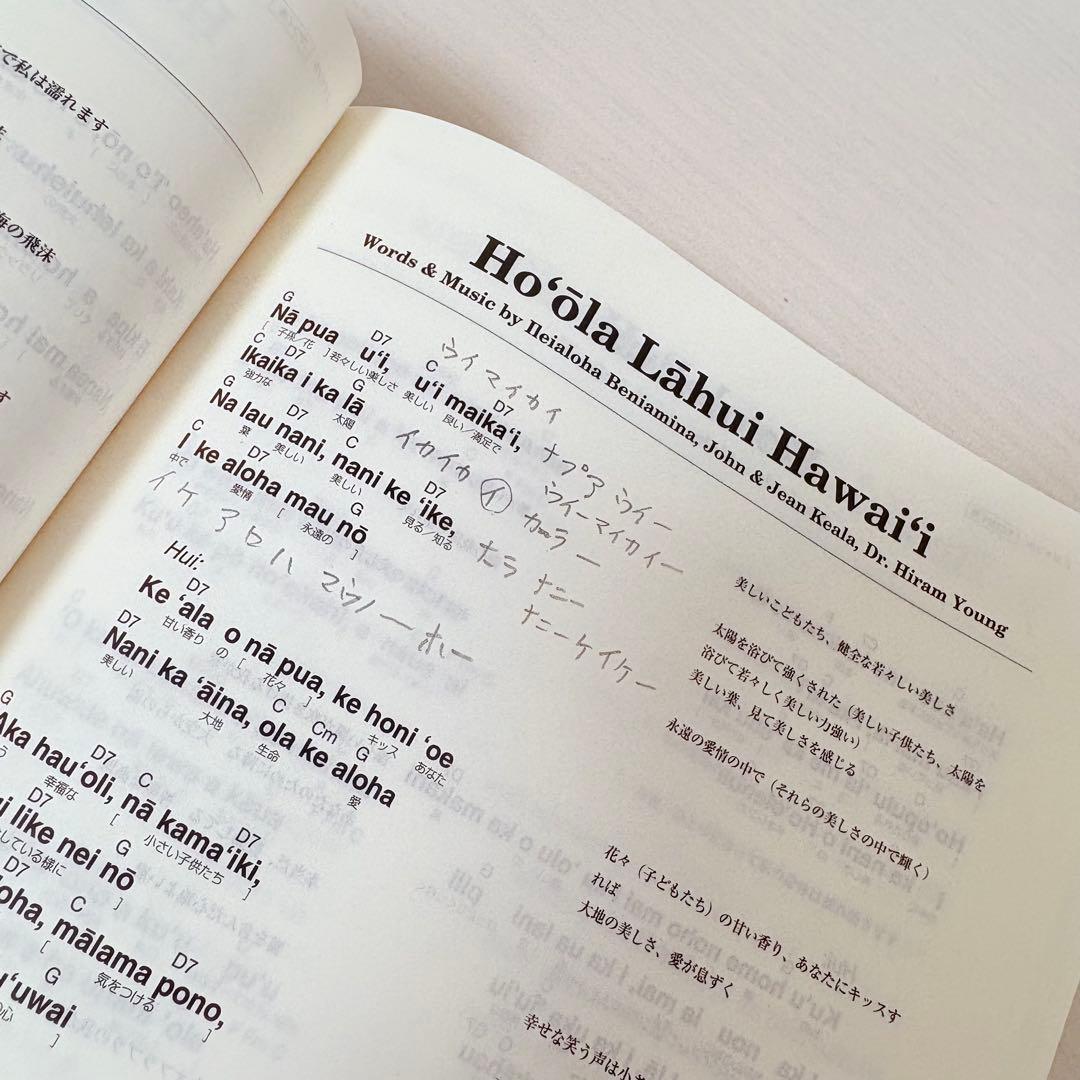 で私は濡れます
海の飛沫
す
Ho‘ōla Lāhui Hawai‘i
Words & Music by Ileialoha Beniamina, John & Jean Keala, Dr. Hiram Young
G D7 C D7
Nā pua u‘i, u‘i maika‘i,
[ 子孫/花 ] 若々しい美しさ 美しい 良い/満足で
ウイ マイカイ
C D7 G
Ikaika i ka lā
強力な 太陽
ナプア ウイー
ウイーマイカイー
G D7 C D7
Na lau nani, nani ke ‘ike,
葉 美しい 美しい 見る/知る
イカイカ イ カラー
C D7 G
I ke aloha mau nō
中で 愛情 [ 永遠の ]
ナラ ナニー
ナニーケイケー
イケ アロハ マウノーホー
Hui:
D7 G
Ke ‘ala o nā pua, ke honi ‘oe
甘い香り の [ 花々 ] キッス あなた
D7 C Cm G
Nani ka ‘āina, ola ke aloha
美しい 大地 生命 愛
G D7 C D7
Aka hau‘oli, nā kama‘iki,
う 幸福な [ 小さい子供たち ]
D7 G
like nei nō
している様に ]
D7 C D7
oha, mālama pono,
[ 気をつける ]
G
u‘uwai
の心 ]
美しいこどもたち、健全な若々しい美しさ
太陽を浴びて強くされた（美しい子供たち、太陽を
浴びて若々しく美しい力強い）
美しい葉、見て美しさを感じる
永遠の愛情の中で（それらの美しさの中で輝く）
花々（子どもたち）の甘い香り、あなたにキッスす
れば
大地の美しさ、愛が息ずく
幸せな笑う声は小